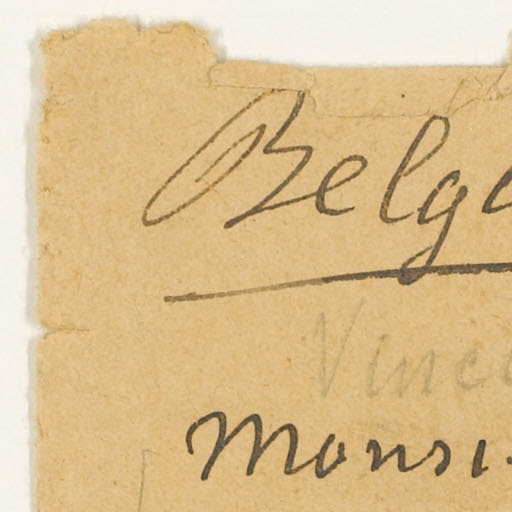 Belg
Vinc
Monsi